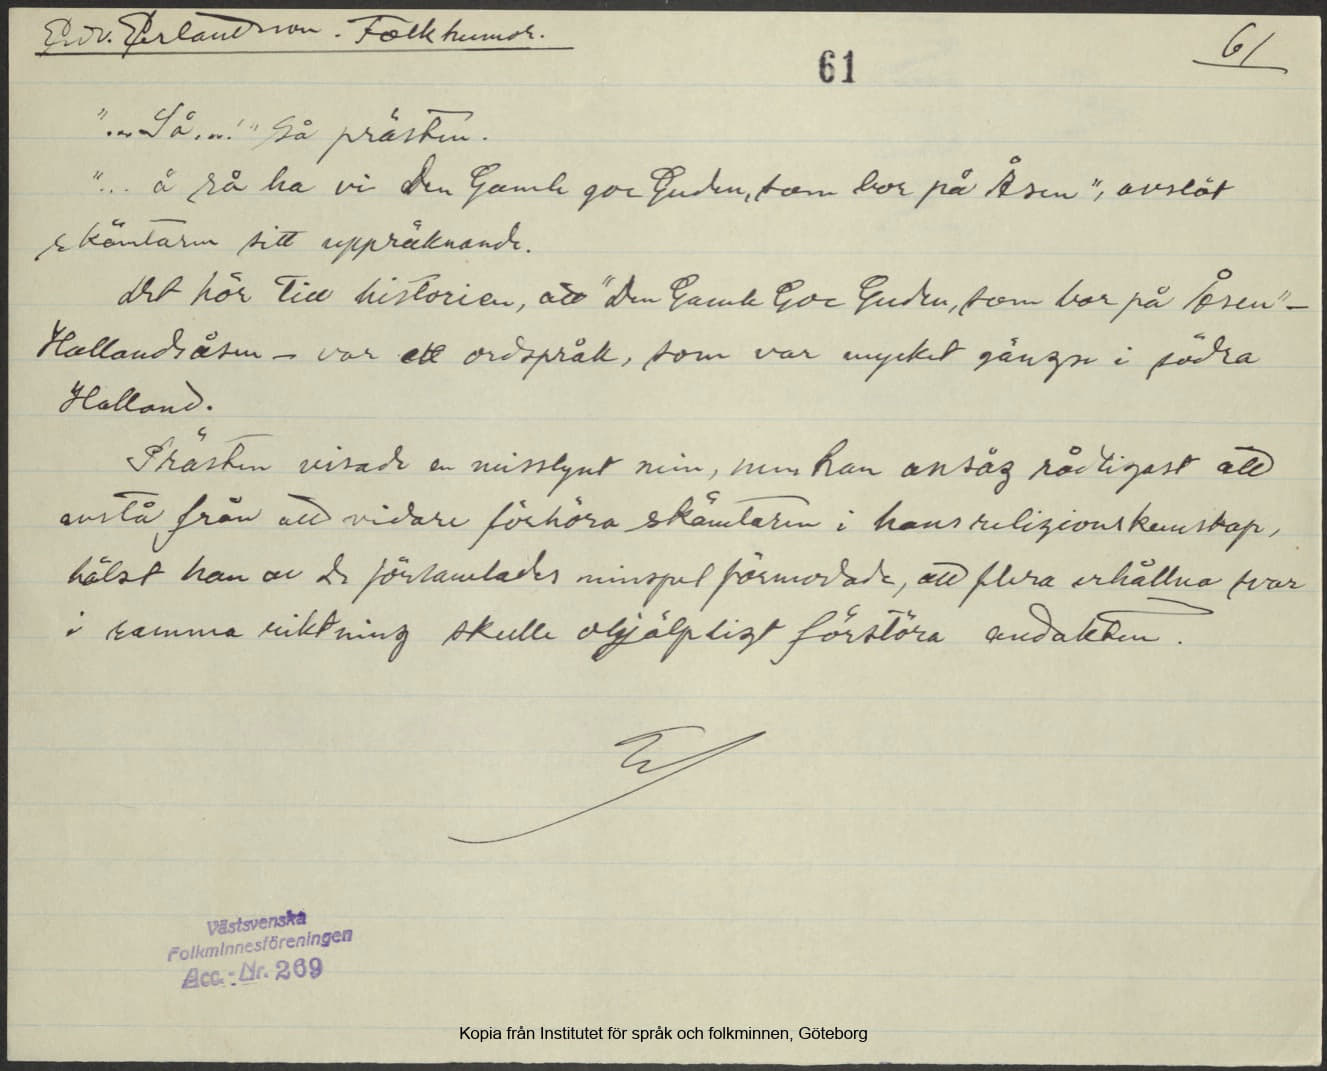 Edv. Erlandsson. Folkhumor.
61
61
"... Så ...!" sa prästen.
"... å så ha vi Den Gamle goe Guden, som bor på Åsen", avslöt
skämtaren sitt uppräknande.
Det hör till historien, att "Den Gamle Goe Guden, som bor på Åsen" –
Hallandsåsen – var ett ordspråk, som var mycket gängse i södra
Halland.
Prästen visade en misslynt min, men han ansåg rådligast att
avstå från att vidare förhöra skämtaren i hans religionskunskap,
hälst han av de församlades minspel förmodade, att flera erhållna svar
i samma riktning skulle ohjälpligt förstöra andakten.
Västsvenska
Folkminnesföreningen
Acc.-Nr. 269
Kopia från Institutet för språk och folkminnen, Göteborg